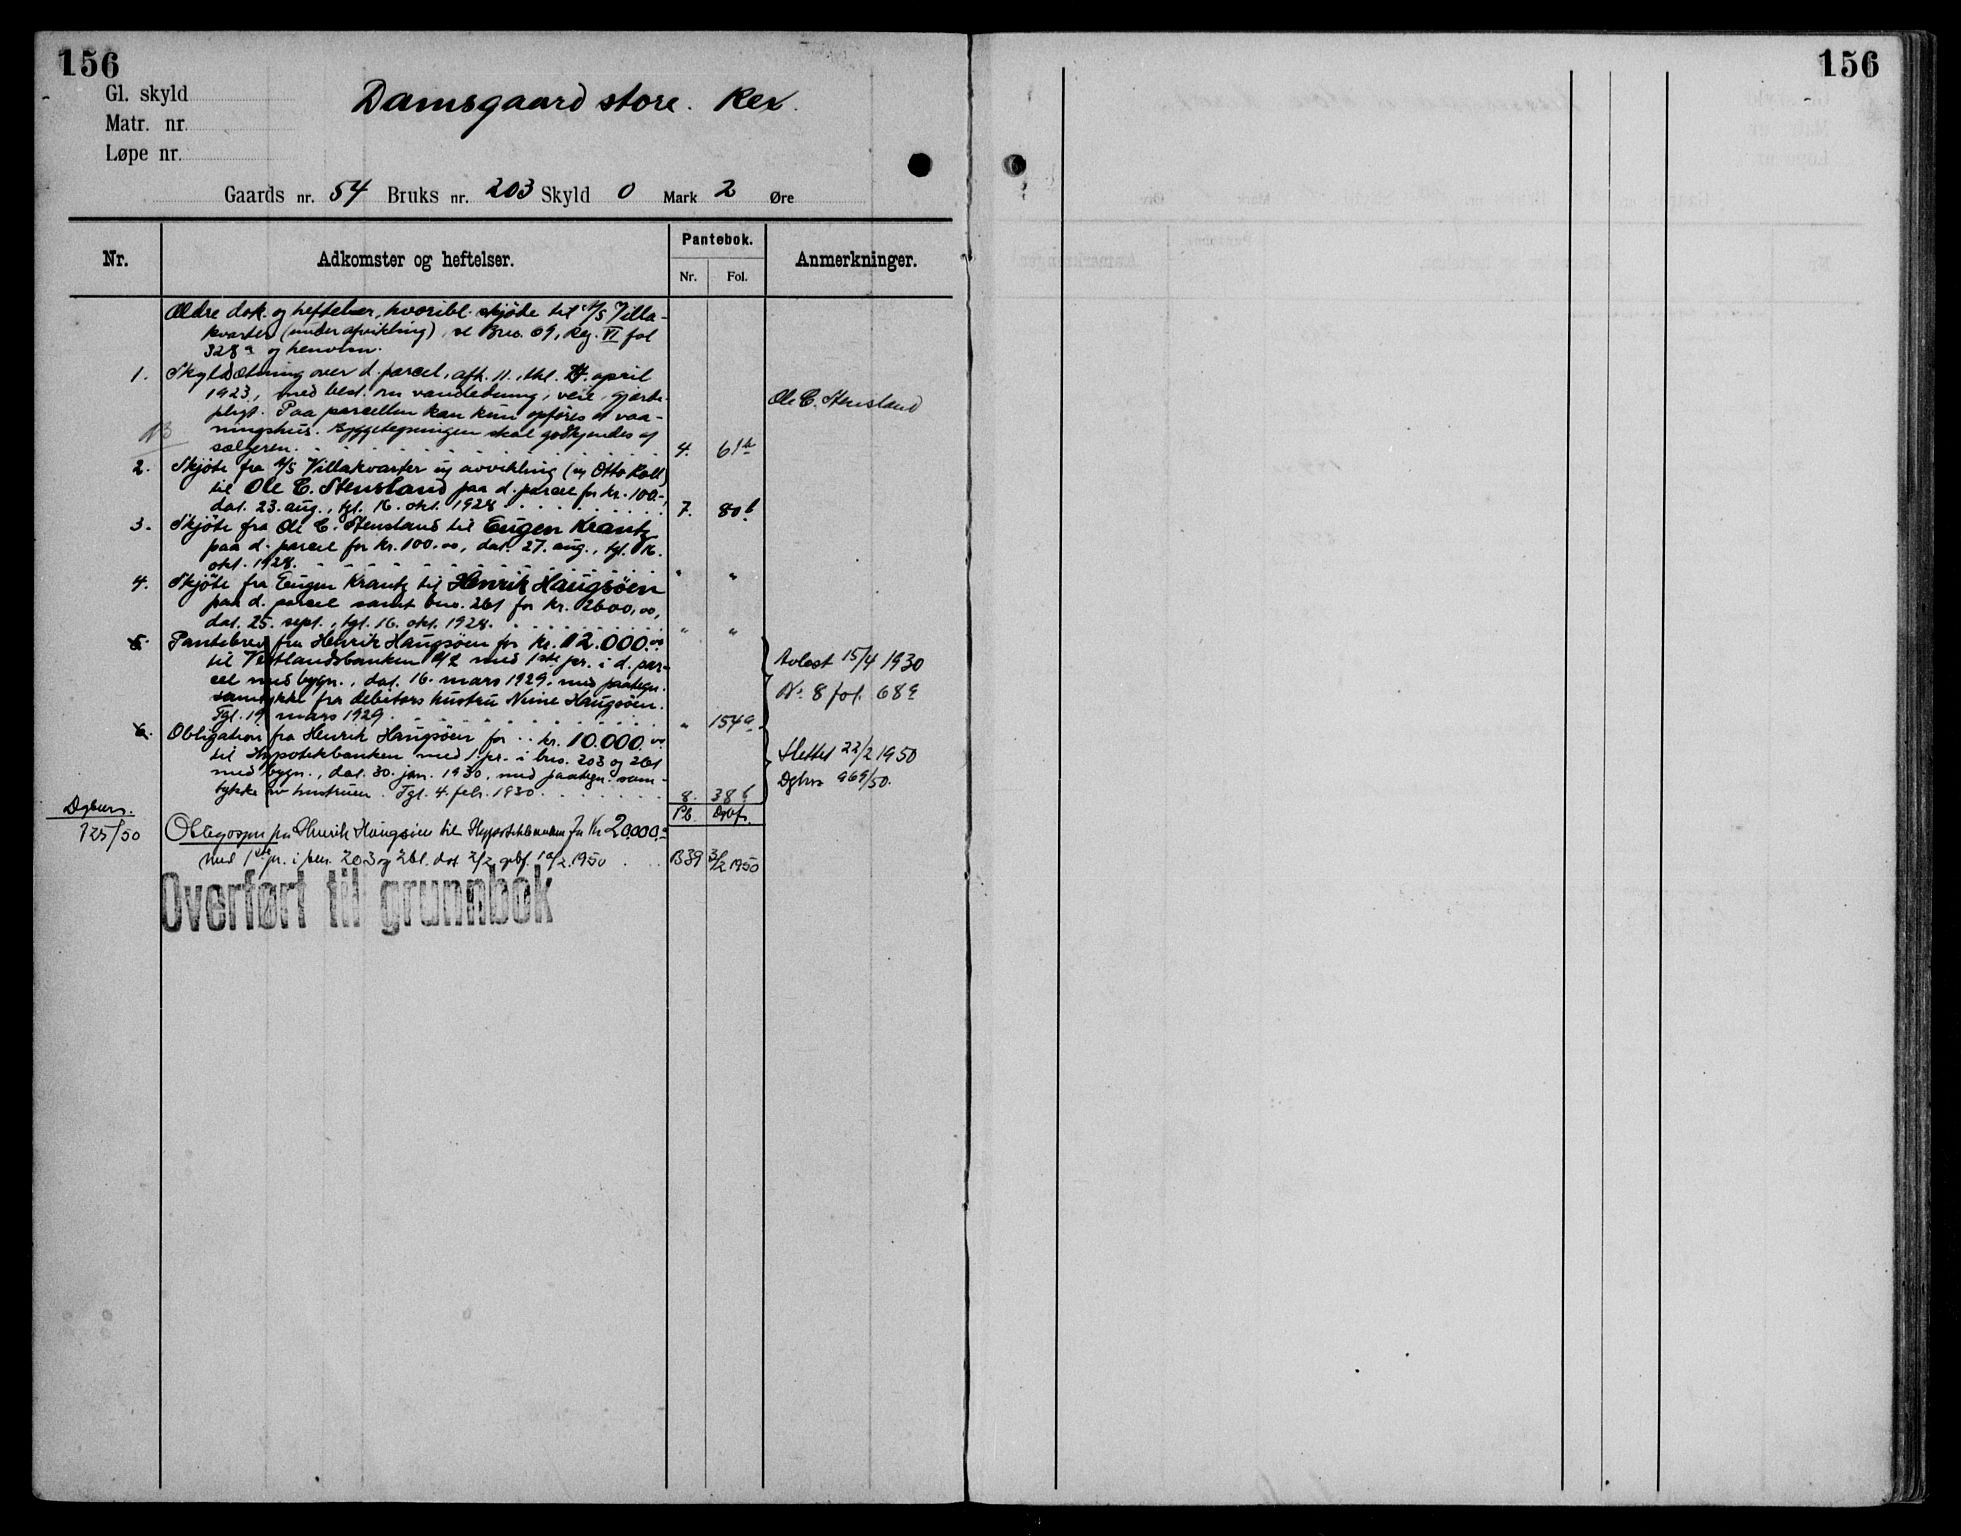 156
156
Gl. skyld
Matr. nr.
Løpe nr.
Damsgaard store. Rex.
Gaards nr. 54 Bruks nr. 203 Skyld 0 Mark 2 Øre
Nr. Adkomster og heftelser. Pantebok. Anmerkninger.
Nr. Fol.
Ældre dok. og heftelser, hvoribl. skjøte til A/S Villa-
kvarter (under afvikling), se Brno. 69, Reg. VI fol
328a og henvisn.
1. Skyldsætning over d. parcel, afh. 11., thl. april
1923, med best. om vandledning, veie, gjerde-
pligt. Paa parcellen kan kun opføres et vaa-
NB ningshus. Byggetegningen skal godkjendes af
sælgeren. 4. 61b
Ole C. Stensland
2. Skjøte fra A/S Villakvarter u/ avvikling (v/ Otto Kall)
til Ole C. Stensland paa d. parcel for kr. 100.-,
dat. 23. aug., tgl. 16. okt. 1928 7. 80b
3. Skjøte fra Ole C. Stensland til Eugen Krantz
paa d. parcel for kr. 100.00, dat. 27. aug., tgl. 16.
okt. 1928. " "
4. Skjøte fra Eugen Krantz til Henrik Haugsøen
paa d. parcel samt bno. 261 for kr. 2600,00,
dat. 25. sept., tgl. 16. okt. 1928. " "
5. Pantebrev fra Henrik Haugsøen for kr. 12.000.00
til Vestlandsbanken A/L med 1ste pr. i d. par-
cel med bygn., dat. 16. mars 1929, med paategn.
samtykke fra debitors hustru Haugsøen.
Tgl. 19. mars 1929. " 154a
Avlest 15/4 1930
N. 8 fol. 68a
6. Obligation fra Henrik Haugsøen for kr. 10.000.00
til Hypotekbanken med 1. pr. i bno. 203 og 261
med bygn., dat. 30. jan. 1930, med paategn. sam-
tykke av hustruen. Tgl. 4. febr. 1930. 8. 38b
Slettet 22/2 1950
Dgbnr 969/50.
Pb. Dgbf.
Dgbnr.
725/50
Obligasjon fra Henrik Haugsøen til Hypotekbanken for Kr 20.000.-
med 1ste pr. i bnr. 203 og 261. dat 2/2 1950 B39 3/2 1950
Overført til grunnbok